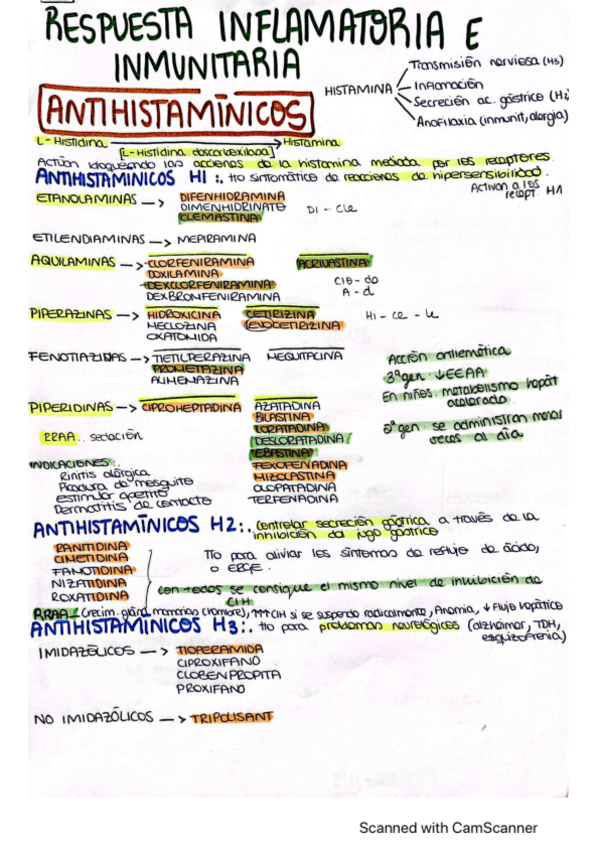 RESPUESTA INFLAMATORIA E
INMUNITARIA
HISTAMINA
Transmisión nerviosa (H3)
Inflamación
Secreción ac. gástrico (H2)
Anafilaxia (inmunit, alergia)
ANTIHISTAMÍNICOS
L-Histidina → Histamina
[L-Histidina descarboxilasa]
Actúan bloqueando las acciones de la histamina mediada por los receptores.
ANTIHISTAMINICOS H1 :. tto sintomático de reacciones de hipersensibilidad.
Activan a los recept. H1
ETANOLAMINAS → DIFENHIDRAMINA
DIMENHIDRINATO
CLEMASTINA
DI - Cle
ETILENDIAMINAS → MEPIRAMINA
AQUILAMINAS → CLORFENIRAMINA ACRIVASTINA
DOXILAMINA
DEXCLORFENIRAMINA
DEXBRONFENIRAMINA
A - d
PIPERAZINAS → HIDROXICINA CETIRIZINA
MECLOZINA LEVOCETIRIZINA
OXATOMIDA
Hi - ce - le
FENOTIAZIDAS → TIETILPERAZINA MEQUITACINA
PROMETAZINA
ALIHEMAZINA
Acción antiemética
3ª gen. ↓EEAA
En niños: metabolismo hepát
acelerado.
2ª gen se administran menos
veces al día
PIPERIDINAS → CIPROHEPTADINA AZATADINA
BILASTINA
LORATADINA
DESLORATADINA
EBASTINA
FEXOFENADINA
MIZOLASTINA
OLOPATADINA
TERFENADINA
RRAA:. sedación
INDICACIONES:.
Rinitis alérgica
Picadura de mosquito
estimular apetito
Dermatitis de contacto
ANTIHISTAMÍNICOS H2:. Controlar secreción gástrica a través de la
inhibición del jugo gástrico
RANITIDINA
CIMETIDINA
FAMOTIDINA
NIZATIDINA
ROXATIDINA
Tto para aliviar los síntomas de reflujo de ácido,
o ERGE.
con todos se consigue el mismo nivel de inhibición de
ClH
RRAA: (crecim. gland. mamarias (hombre), ↑↑↑ClH si se suspende radicalmente, Anemia, ↓Flujo hepático
ANTIHISTAMÍNICOS H3:. tto para problemas neurológicos (alzheimer, TDH,
esquizofrenia)
IMIDAZÓLICOS → TIOPERAMIDA
CIPROXIFANO
CLOBENPROPITA
PROXIFANO
NO IMIDAZÓLICOS → TRIPOLISANT
Scanned with CamScanner